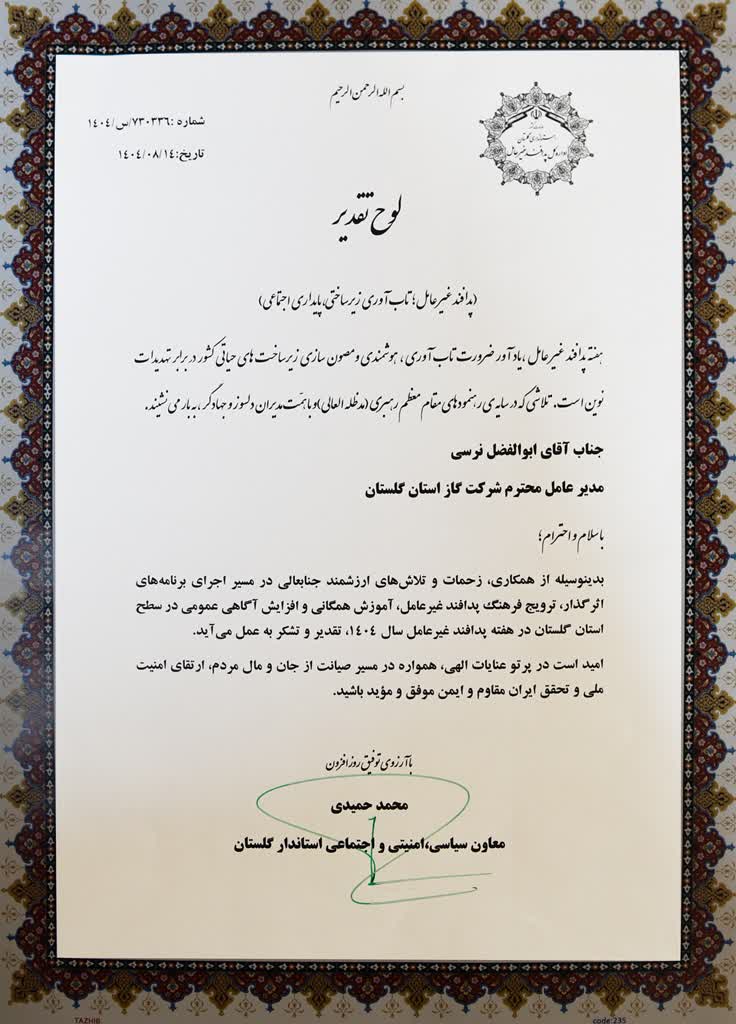 بسم الله الرحمن الرحیم
شماره :۷۳۰۳۳۶/س/۱۴۰۴
تاریخ:۱۴۰۴/۰۸/۱۴
استانداری گلستان
اداره کل پدافند غیرعامل
لوح تقدیر
(پدافند غیرعامل؛ تاب‌آوری زیرساختی، پایداری اجتماعی)
هفته پدافند غیرعامل ، یادآور ضرورت تاب آوری ، هوشمندی و مصون سازی زیرساخت های حیاتی کشور در برابر تهدیدات
نوین است. تلاشی که در سایه‌ی رهنمودهای مقام معظم رهبری (مدظله العالی) و با همّت مدیران دلسوز و جهادگر ، به بار می نشیند.
جناب آقای ابوالفضل نرسی
مدیر عامل محترم شرکت گاز استان گلستان
باسلام و احترام؛
بدینوسیله از همکاری، زحمات و تلاش‌های ارزشمند جنابعالی در مسیر اجرای برنامه‌های
اثرگذار، ترویج فرهنگ پدافند غیرعامل، آموزش همگانی و افزایش آگاهی عمومی در سطح
استان گلستان در هفته پدافند غیرعامل سال ۱۴۰۴، تقدیر و تشکر به عمل می‌آید.
امید است در پرتو عنایات الهی، همواره در مسیر صیانت از جان و مال مردم، ارتقای امنیت
ملی و تحقق ایران مقاوم و ایمن موفق و مؤید باشید.
با آرزوی توفیق روزافزون
محمد حمیدی
معاون سیاسی،امنیتی و اجتماعی استاندار گلستان
TAZHIB
code:235